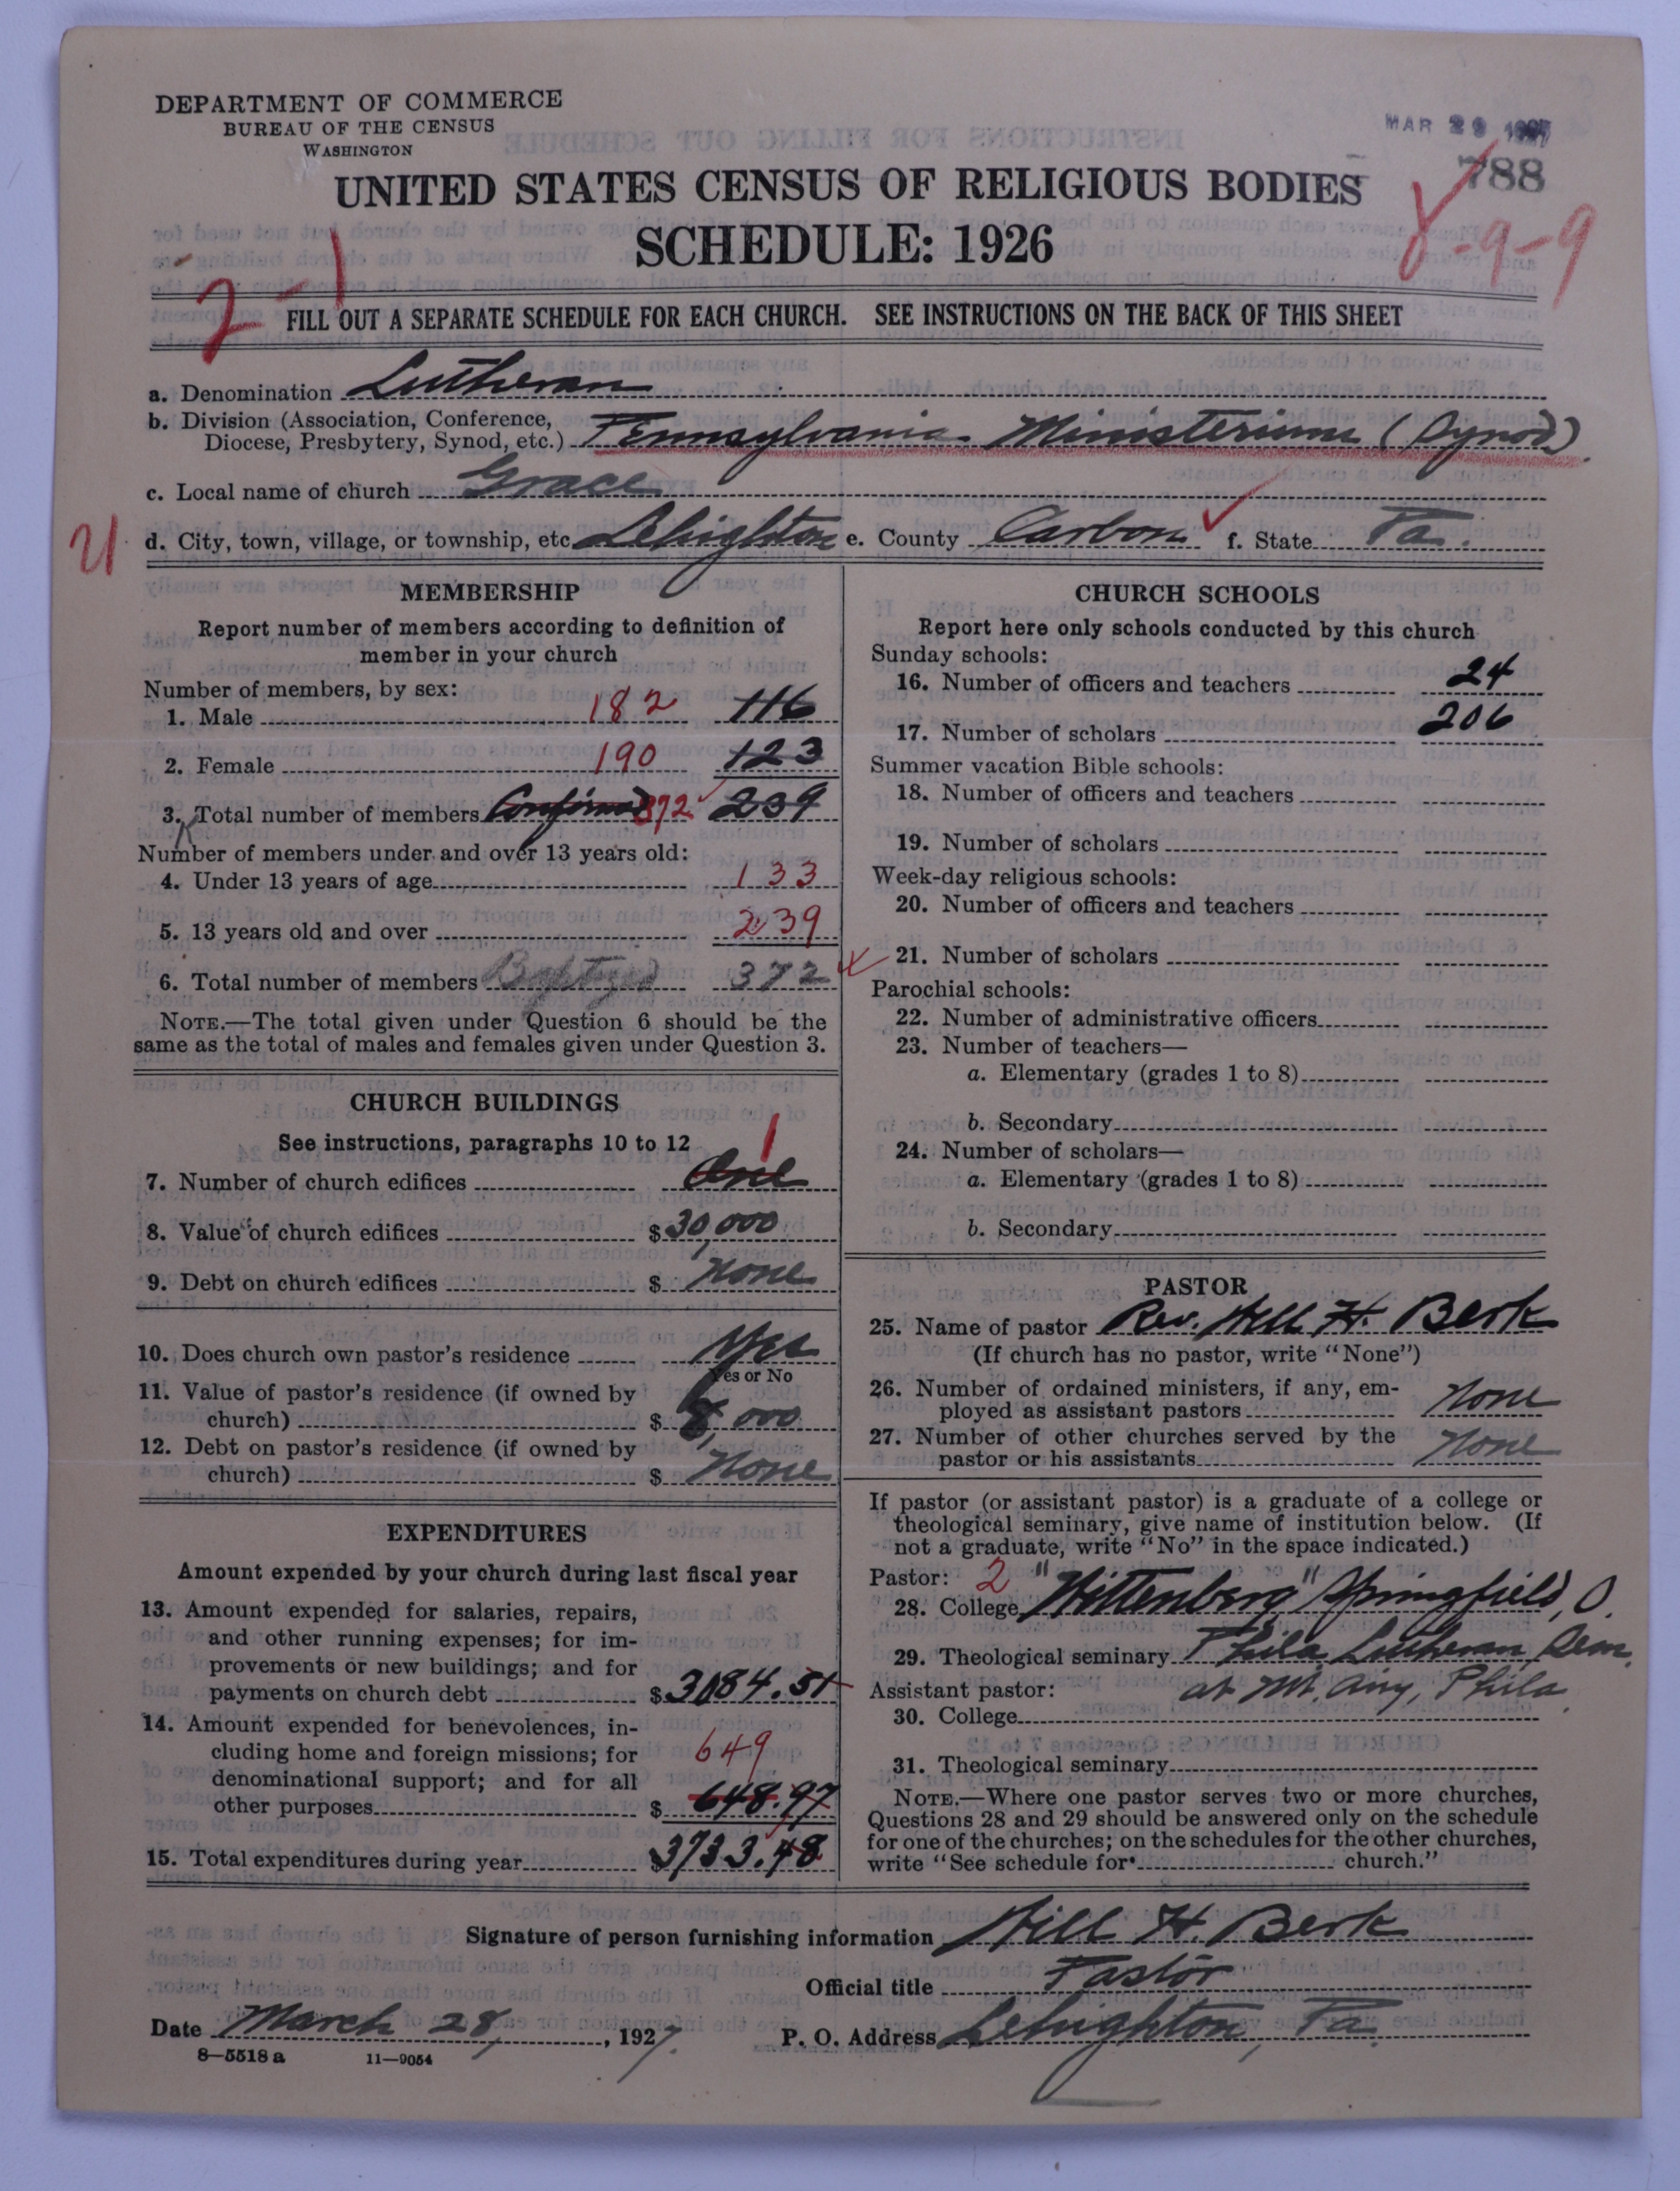 DEPARTMENT OF COMMERCE
BUREAU OF THE CENSUS
WASHINGTON
MAR 29 1927
788
UNITED STATES CENSUS OF RELIGIOUS BODIES
SCHEDULE: 1926
8-9-9
2-1
FILL OUT A SEPARATE SCHEDULE FOR EACH CHURCH. SEE INSTRUCTIONS ON THE BACK OF THIS SHEET
a. Denomination Lutheran
b. Division (Association, Conference,
Diocese, Presbytery, Synod, etc.) Pennsylvania Ministerium (Synod)
c. Local name of church Grace
U d. City, town, village, or township, etc. Lehighton e. County Carbon f. State Pa.
MEMBERSHIP
Report number of members according to definition of
member in your church
Number of members, by sex:
1. Male 182 116
2. Female 190 123
3. Total number of members Confirmed 372 239
Number of members under and over 13 years old:
4. Under 13 years of age 133
5. 13 years old and over 239
6. Total number of members Baptized 372
NOTE.—The total given under Question 6 should be the
same as the total of males and females given under Question 3.
CHURCH BUILDINGS
See instructions, paragraphs 10 to 12
7. Number of church edifices One 1
8. Value of church edifices $30,000
9. Debt on church edifices $ None
10. Does church own pastor's residence Yes
Yes or No
11. Value of pastor's residence (if owned by
church) $ 8,000
12. Debt on pastor's residence (if owned by
church) $ None
EXPENDITURES
Amount expended by your church during last fiscal year
13. Amount expended for salaries, repairs,
and other running expenses; for im-
provements or new buildings; and for
payments on church debt $3084.51
14. Amount expended for benevolences, in-
cluding home and foreign missions; for 649
denominational support; and for all
other purposes $ 648.97
15. Total expenditures during year $3733.48
CHURCH SCHOOLS
Report here only schools conducted by this church
Sunday schools:
16. Number of officers and teachers 24
17. Number of scholars 206
Summer vacation Bible schools:
18. Number of officers and teachers
19. Number of scholars
Week-day religious schools:
20. Number of officers and teachers
21. Number of scholars
Parochial schools:
22. Number of administrative officers
23. Number of teachers—
a. Elementary (grades 1 to 8)
b. Secondary
24. Number of scholars—
a. Elementary (grades 1 to 8)
b. Secondary
PASTOR
25. Name of pastor Rev. Will H. Berk
(If church has no pastor, write "None")
26. Number of ordained ministers, if any, em-
ployed as assistant pastors None
27. Number of other churches served by the
pastor or his assistants None
If pastor (or assistant pastor) is a graduate of a college or
theological seminary, give name of institution below. (If
not a graduate, write "No" in the space indicated.)
Pastor: 2
28. College "Wittenberg" Springfield, O.
29. Theological seminary Phila Lutheran Sem.
Assistant pastor: at Mt. Airy, Phila.
30. College
31. Theological seminary
NOTE.—Where one pastor serves two or more churches,
Questions 28 and 29 should be answered only on the schedule
for one of the churches; on the schedules for the other churches,
write "See schedule for church."
Signature of person furnishing information Will H. Berk
Official title Pastor
Date March 28, 1927. P. O. Address Lehighton, Pa.
8-5518 a 11-9054